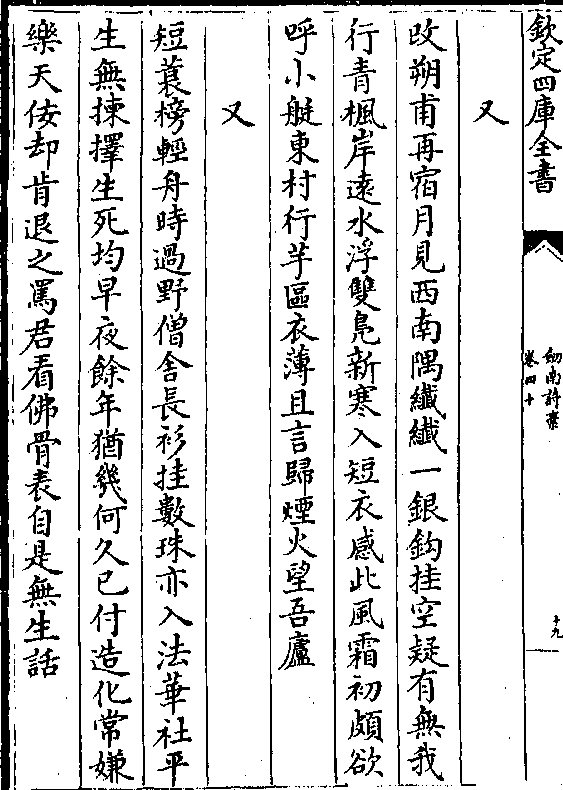 欽定四庫全書
劒南詩稾
卷四十
十九
又
改朔甫再宿月見西南隅纖纖一銀鈎挂空疑有無我
行青楓岸遠水浮雙鳧新寒入短衣感此風霜初頗欲
呼小艇東村行芋區衣薄且言歸煙火望吾廬
又
短蓑榜輕舟時過野僧舍長衫挂數珠亦入法華社平
生無揀擇生死均早夜餘年猶幾何久已付造化常嫌
樂天佞却肯退之罵君看佛骨表自是無生話